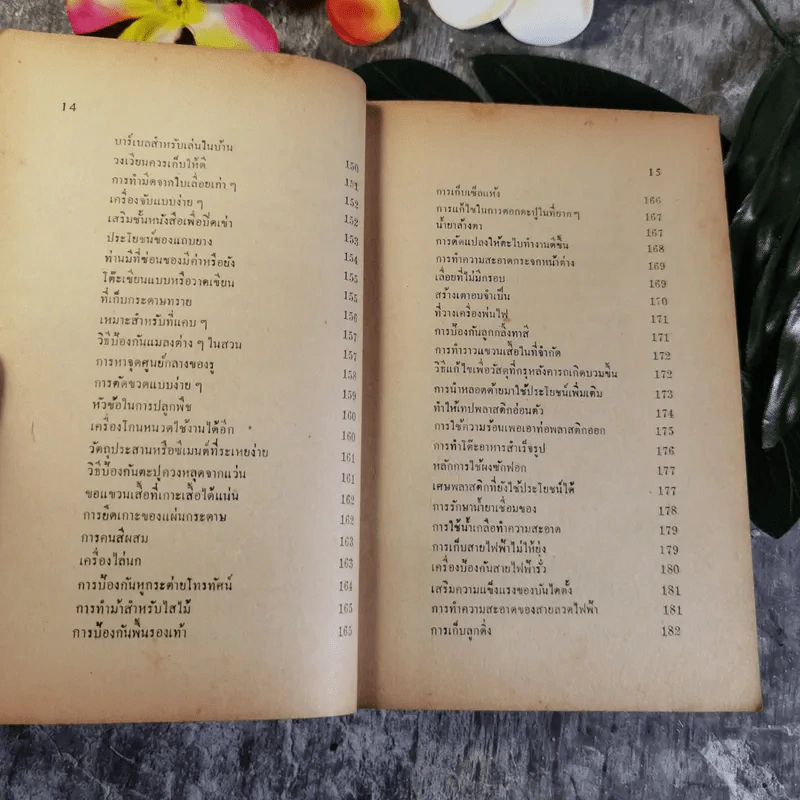 14
บาร์เบลสำหรับเล่นในบ้าน 150
วงเวียนควรเก็บให้ดี 151
การทำมีดจากใบเลื่อยเก่า ๆ 152
เครื่องจับแบบง่าย ๆ 152
เสริมชั้นหนังสือเพื่อปิดเข่า 153
ประโยชน์ของแถบยาง 154
ท่านมีที่ซ่อนของมีค่าหรือยัง 155
โต๊ะเขียนแบบหรือวาดเขียน 155
ที่เก็บกระดาษทราย 156
เหมาะสำหรับที่แคบ ๆ 157
วิธีป้องกันแมลงต่าง ๆ ในสวน 157
การหาจุดศูนย์กลางของรู 158
การตัดขวดแบบง่าย ๆ 159
หัวข้อในการปลูกพืช 160
เครื่องโกนหนวดใช้งานได้อีก 160
วัตถุประสานหรือซีเมนต์ที่ระเหยง่าย 161
วิธีป้องกันตะปูควงหลุดจากแว่น 161
ขอแขวนเสื้อที่เกาะเสื้อได้แน่น 162
การยึดเกาะของแผ่นกระดาษ 162
การคนสีผสม 163
เครื่องไล่นก 163
การป้องกันหูกระต่ายโทรทัศน์ 164
การทำม้าสำหรับไสไม้ 165
การป้องกันพื้นรองเท้า 165
15
การเก็บเซ็ลแห้ง 166
การแก้ไขในการตอกตะปูในที่ยาก ๆ 167
น้ำยาล้างตา 167
การดัดแปลงให้ตะไบทำงานดีขึ้น 168
การทำความสะอาดกระจกหน้าต่าง 169
เลื่อยที่ไม่มีกรอบ 169
สร้างเตาอบจำเป็น 170
ที่วางเครื่องพ่นไฟ 171
การป้องกันลูกกลิ้งทาสี 171
การทำราวแขวนเสื้อในที่จำกัด 172
วิธีแก้ไขเพื่อวัสดุที่กรุหลังคารถเกิดบวมขึ้น 172
การนำหลอดด้ายมาใช้ประโยชน์เพิ่มเติม 173
ทำให้เทปพลาสติกอ่อนตัว 174
การใช้ความร้อนเพอเอาท่อพลาสติกออก 175
การทำโต๊ะอาหารสำเร็จรูป 176
หลักการใช้ผงซักฟอก 177
เศษพลาสติกที่ยังใช้ประโยชน์ได้ 177
การรักษาน้ำยาเชื่อมของ 178
การใช้น้ำเกลือทำความสะอาด 179
การเก็บสายไฟฟ้าไม่ให้ยุ่ง 179
เครื่องป้องกันสายไฟฟ้ารั่ว 180
เสริมความแข็งแรงของบันไดตั้ง 181
การทำความสะอาดของสายลวดไฟฟ้า 181
การเก็บลูกดิ่ง 182